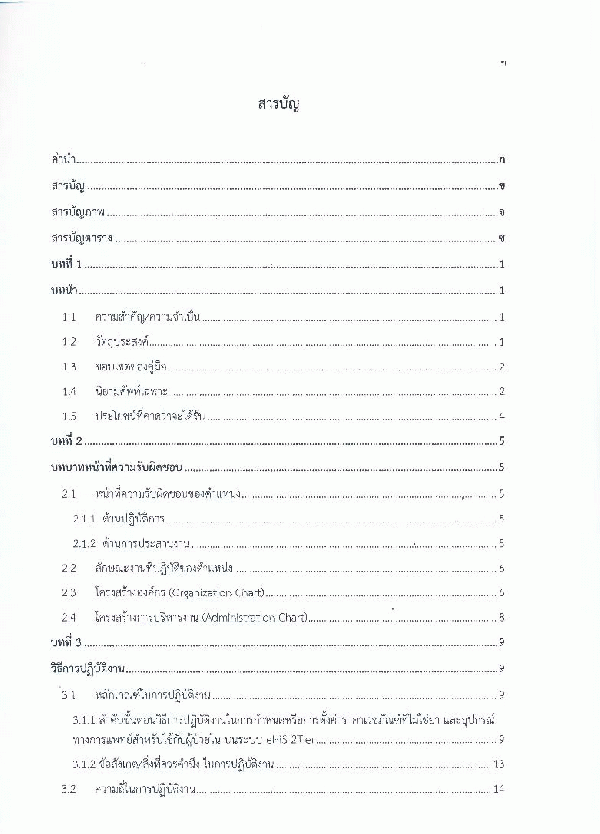 ข
สารบัญ
คำนำ....ก
สารบัญ....ข
สารบัญภาพ....จ
สารบัญตาราง....ช
บทที่ 1....1
บทนำ....1
1.1 ความสำคัญ/ความจำเป็น....1
1.2 วัตถุประสงค์....1
1.3 ขอบเขตของคู่มือ....2
1.4 นิยามศัพท์เฉพาะ....2
1.5 ประโยชน์ที่คาดว่าจะได้รับ....4
บทที่ 2....5
บทบาทหน้าที่ความรับผิดชอบ....5
2.1 หน้าที่ความรับผิดชอบของตำแหน่ง....5
2.1.1 ด้านปฏิบัติการ....5
2.1.2 ด้านการประสานงาน....5
2.2 ลักษณะงานที่ปฏิบัติของตำแหน่ง....6
2.3 โครงสร้างองค์กร (Organization Chart)....6
2.4 โครงสร้างการบริหารงาน (Administration Chart)....8
บทที่ 3....9
วิธีการปฏิบัติงาน....9
3.1 หลักเกณฑ์ในการปฏิบัติงาน....9
3.1.1 ลำดับขั้นตอนวิธีการปฏิบัติงานในการกำหนดหรือการตั้งค่า เวชภัณฑ์ที่ไม่ใช่ยา และอุปกรณ์
ทางการแพทย์สำหรับใช้กับผู้ป่วยใน บนระบบ eHIS 2Tier....9
3.1.2 ข้อสังเกต/สิ่งที่ควรคำนึง ในการปฏิบัติงาน....13
3.2 ความถี่ในการปฏิบัติงาน....14